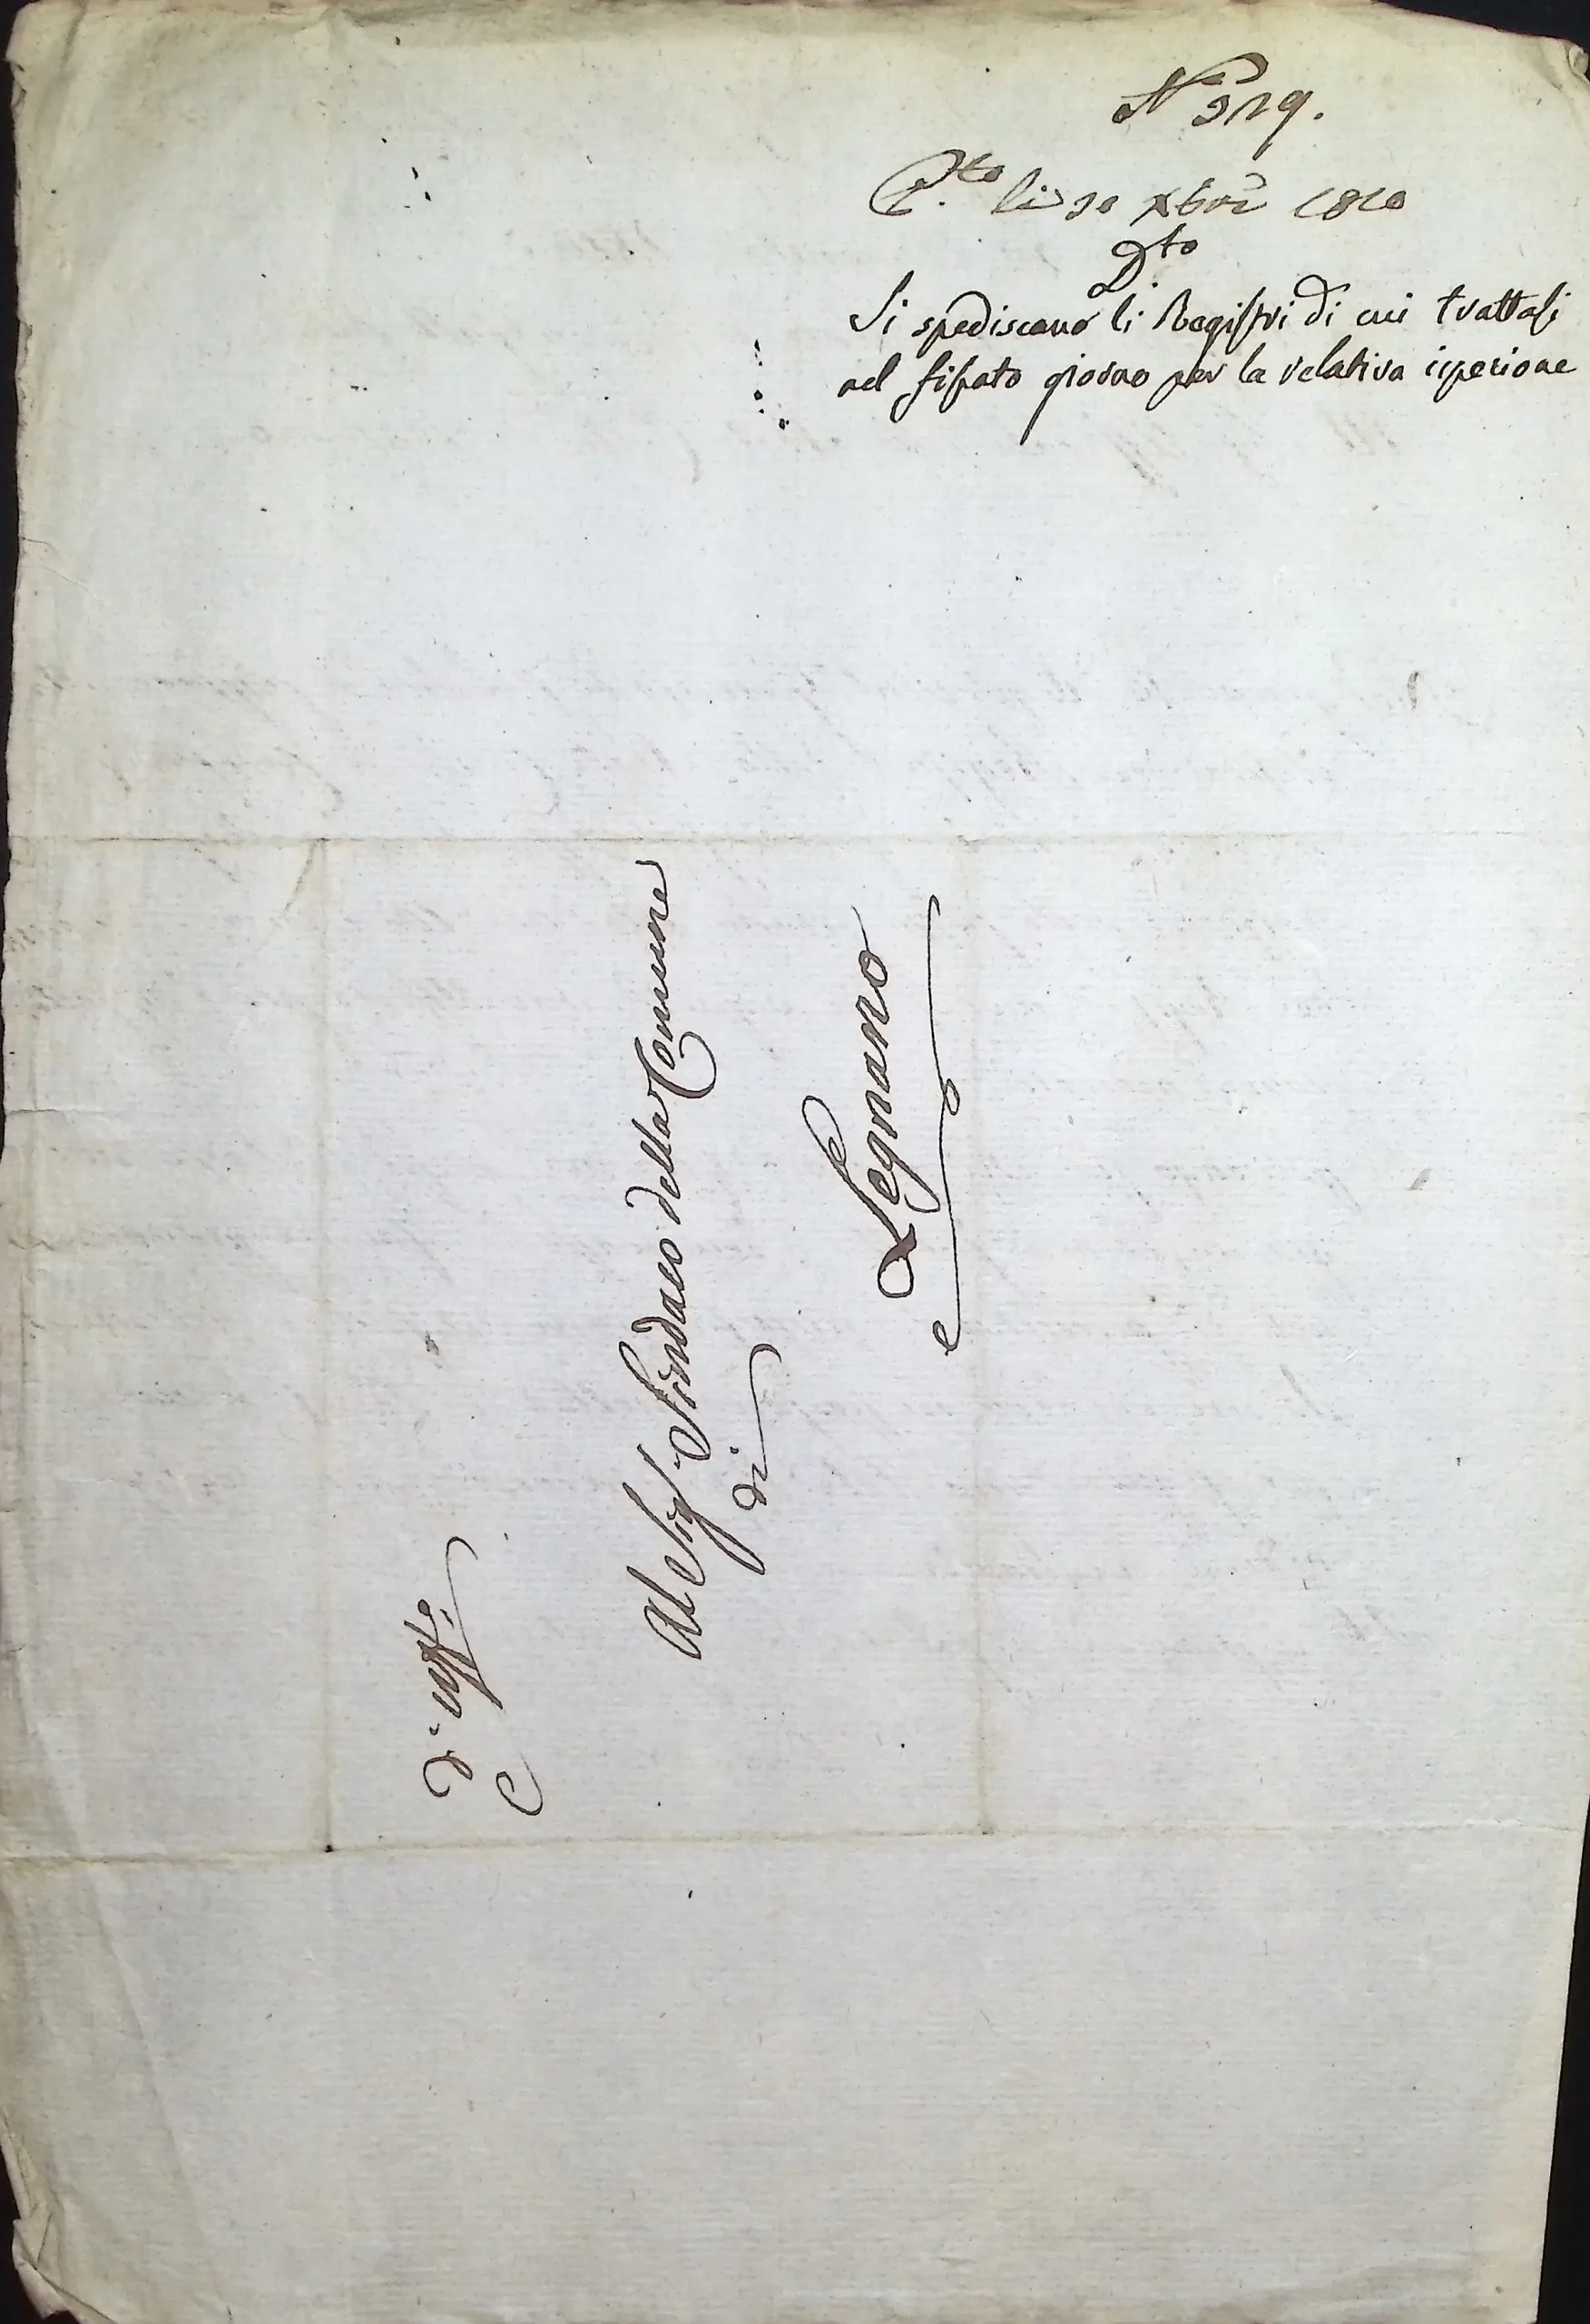 N 519.
P.to li 30 xbre 1810
D.to
Si spediscano li Registri di cui trattasi
nel fissato giorno per la relativa ispezione
d'uff.o
Al Sig.r Sindaco della Comune
di
Legnano